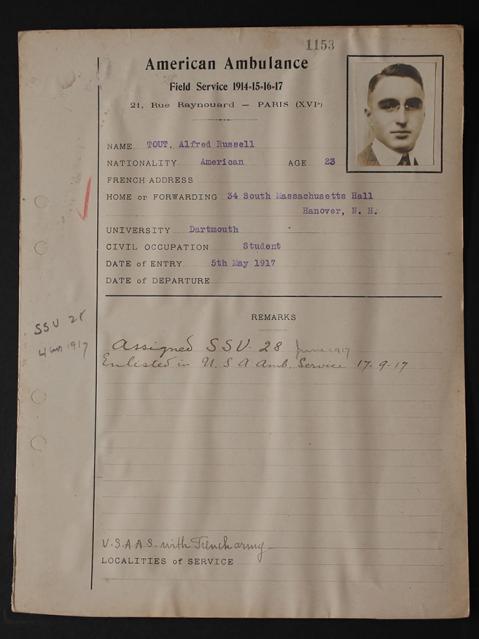 1153
American Ambulance
Field Service 1914-15-16-17
21, Rue Raynouard — PARIS (XVIe)
NAME TOUT, Alfred Russell
NATIONALITY American AGE 23
FRENCH ADDRESS
HOME or FORWARDING 34 South Massachusetts Hall
Hanover, N. H.
UNIVERSITY Dartmouth
CIVIL OCCUPATION Student
DATE of ENTRY 5th May 1917
DATE of DEPARTURE
REMARKS
SSU 28
1917
Assigned SSU 28 June 1917
Enlisted in U.S A Amb. Service 17-9-17
U.S.A.A.S. with French army
LOCALITIES of SERVICE